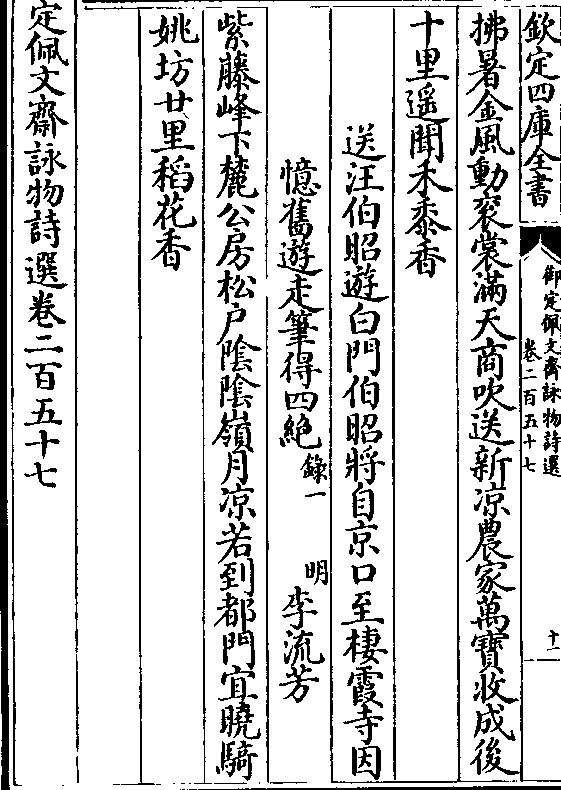 欽定四庫全書
御定佩文齋詠物詩選
卷二百五十七
十一
拂暑金風動袞裳滿天商吹送新凉農家萬寶收成後
十里遥聞禾黍香
送汪伯昭遊白門伯昭將自京口至棲霞寺因
憶舊遊走筆得四絶錄一 明 李流芳
紫藤峰下麓公房松戶陰陰嶺月凉若到都門宜曉騎
姚坊廿里稻花香
定佩文齋詠物詩選卷二百五十七